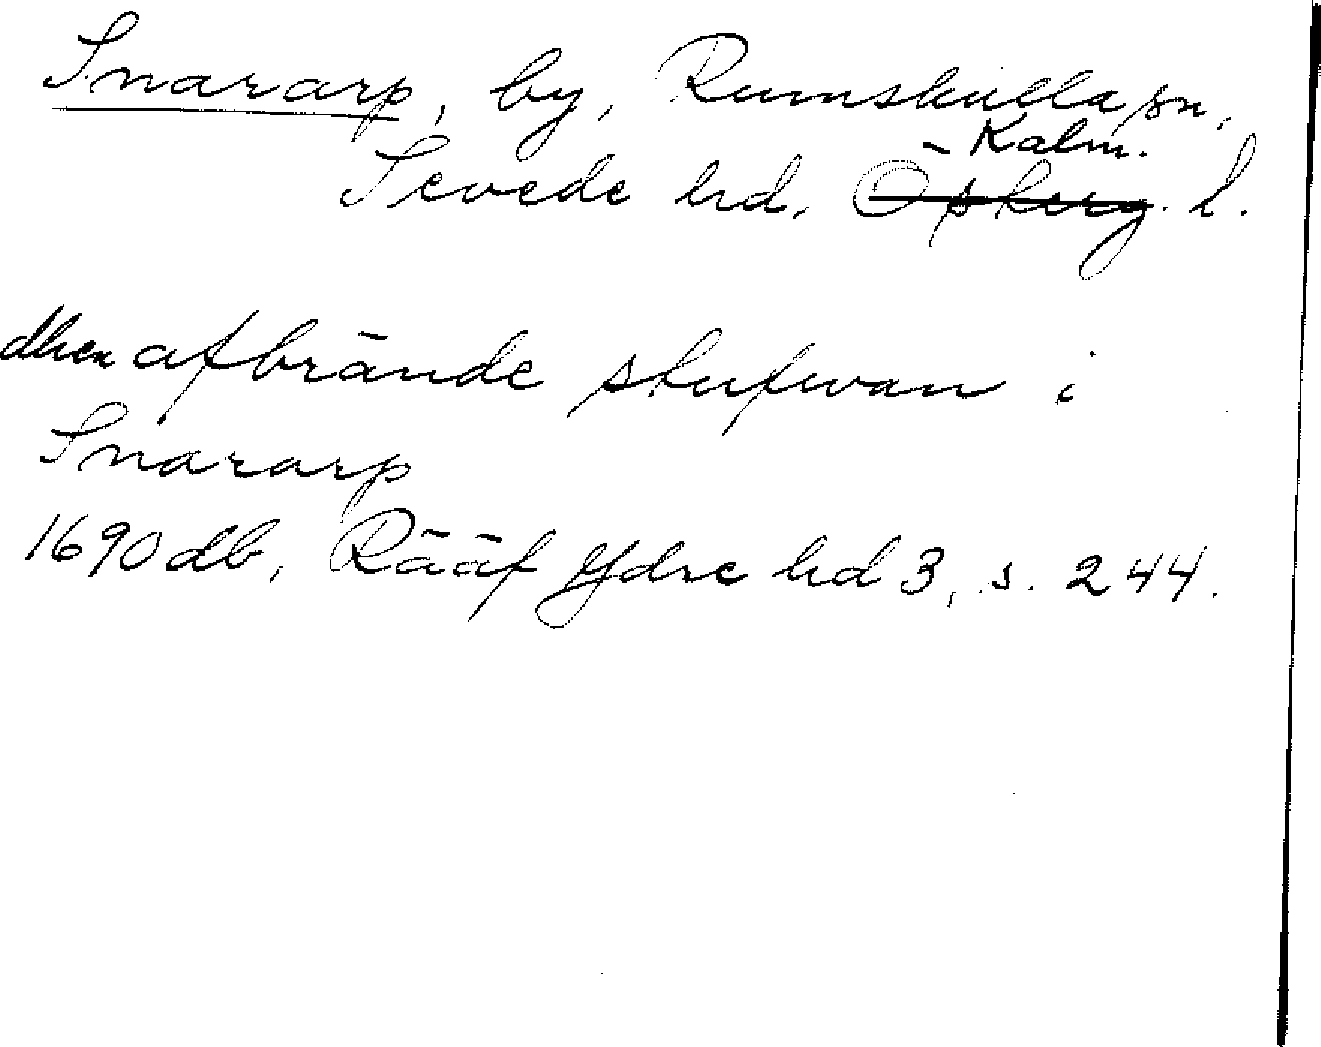 Snararp, by, Rumskulla sn,
Kalm.
Sevede hd. Östberg. l.
dhen afbrände stufwan i
Snararp
1690 db, Rääf Ydre hd 3, s. 244.